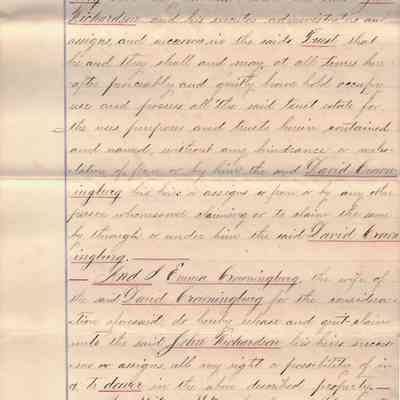 Richardson and his executors administrators and
assigns and successors in the said Trust that
he and they shall and may at all times here
after peaceably and quietly have hold occupy
use and possess all the said trust estate for
the uses purposes and trusts herein contained
and named, without any hindrance or moles-
tation of from or by him the said David Crown
ingburg his heirs or assigns or from or by any other
person whomsoever claiming or to claim the same
by through or under him the said David Crown
ingburg.
And I Emma Crowningburg the wife of
the said David Crowningburg for the considera-
tion aforesaid do hereby release and quit-claim
unto the said John Richardson his heirs success
ors or assigns all my right or possibility of
to dower in the above described property.